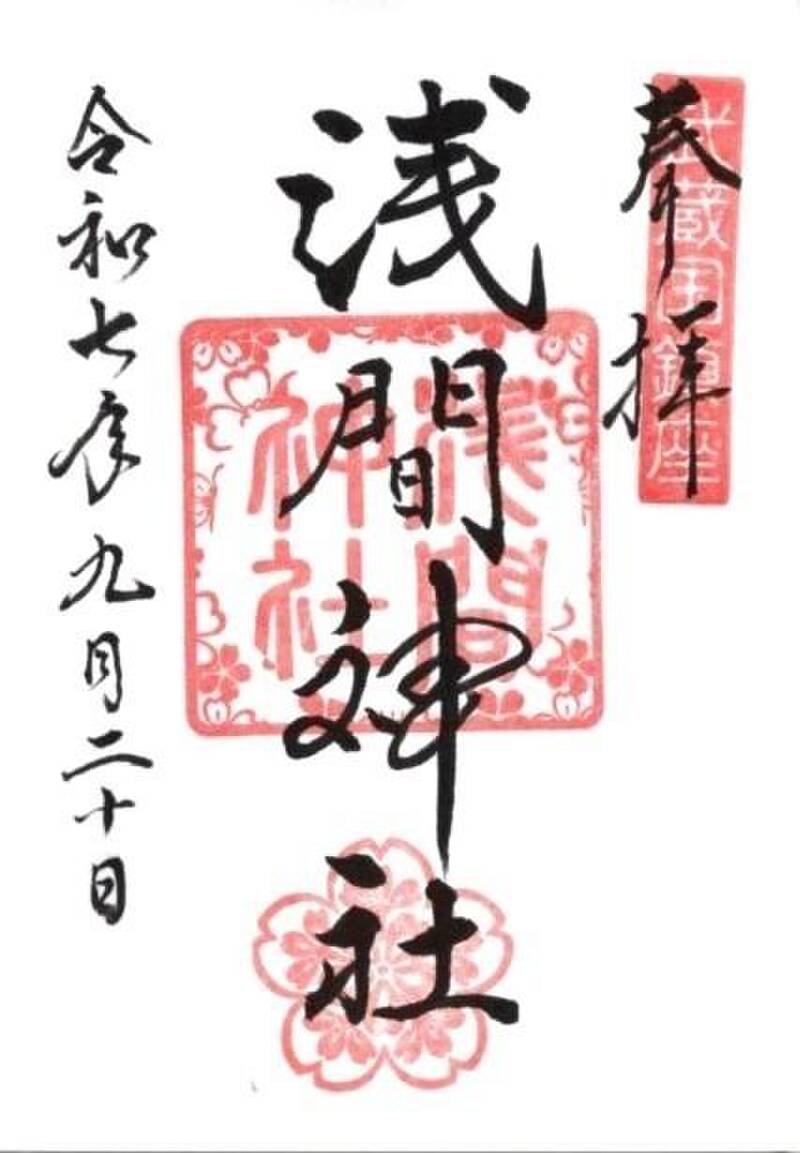 奉拝
武蔵国鎮座
浅間神社
浅間
神社
令和七年九月二十日